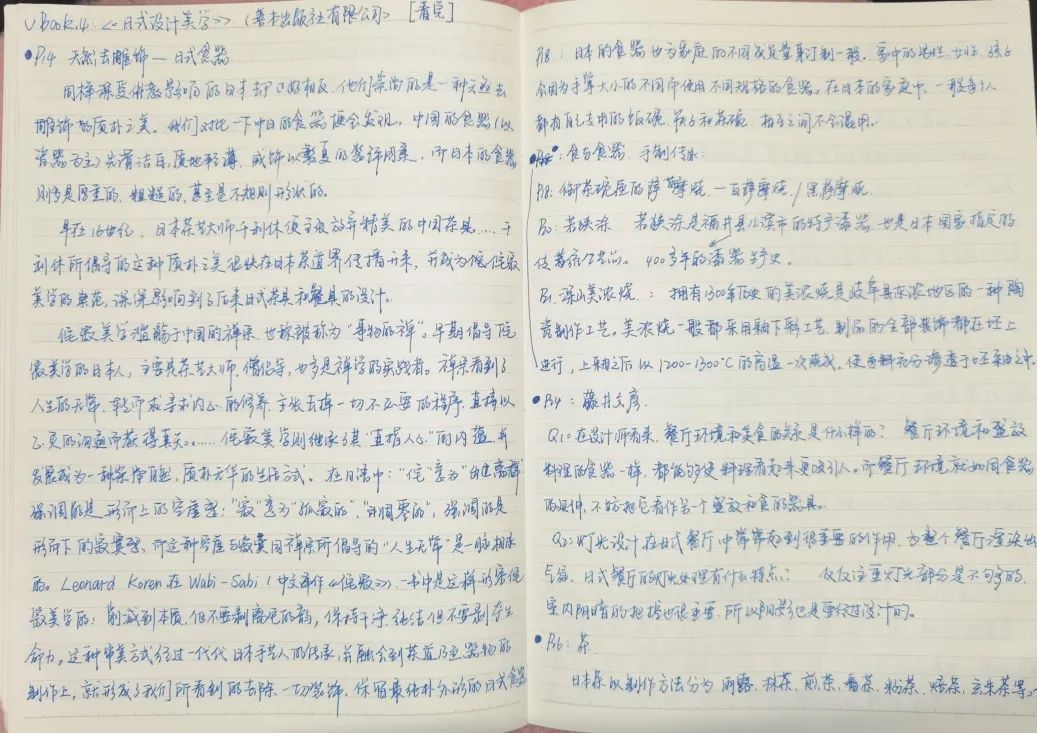 Book.4:《日式设计美学》(善本出版社有限公司) [看完]
P14 天然去雕饰—日式食器
同样深受佛教影响的日本却正好相反,他们崇尚的是一种天然去
雕饰的质朴之美。我们对比一下中日的食器便会发现,中国的食器(以
瓷器为主)光滑洁白,质地轻薄,或饰以繁复的装饰图案,而日本的食器
则多是厚重的、粗糙的,甚至是不规则形状的。
早在16世纪,日本茶艺大师千利休便主张放弃精美的中国茶具……千
利休所倡导的这种质朴之美很快在日本茶道界传播开来,并成为侘寂
美学的典范,深深影响到了后来日式茶具和餐具的设计。
侘寂美学滥觞于中国的禅宗,也被称为“事物的禅”。早期倡导侘
寂美学的日本人,主要是茶艺大师、僧侣等,也多是禅学的实践者。禅宗看到了
人生的无常,转而求寻求内心的修养,主张去掉一切不必要的程序,直接以
心灵的沟通而获得真天。……侘寂美学则继承了其“直指人心”的内蕴,并
发展成为一种崇尚自然,质朴无华的生活方式。在日语中:“侘”意为
强调的是形而上的空虚型;“寂”意为“孤寂的”、“凋零的”,强调的是
形而下的寂寞型。而这种空虚与寂寞同禅宗所倡导的“人生无常”是一脉相承
的。Leonard Koren在Wabi-Sabi(中文译作《侘寂》)一书中是这样形容侘
寂美学的:削减到本质,但不要剥离它的韵,保持干净纯洁但不要剥夺生
命力。这种审美方式经过一代代日本手艺人的传承,并融会到茶道乃至器物的
制作上,就形成了我们所看到的去除一切装饰,保留最纯朴外形的日式食器
P18:日本的食器也为家庭的不同成员量身订制一般。家中的男性、女性、孩子
会因为手掌大小的不同而使用不同规格的食器。在日本的家庭中,一般每个人
都有自己专用的饭碗、筷子和茶碗,相互之间不会混用。
食与食器 手制传承:
P18:御茶碗屋的萨摩烧—白萨摩烧/黑萨摩烧
若狭涂 若狭涂是福井县小滨市的特产漆器,也是日本国家指定的
传统工艺品。400多年的漆器历史。
深山美浓烧:拥有1300年历史的美浓烧是岐阜县东浓地区的一种陶
瓷制作工艺。美浓烧一般都采用釉下彩工艺,制品的全部装饰都在坯上
进行,上釉之后以1200-1300℃的高温一次烧成,使色料充分渗透于坯釉之中.
藤井文彦
Q1:在设计师看来,餐厅环境和美食的关系是什么样的? 餐厅环境和盛放
料理的食器一样,都能够使料理看起来更吸引人。而餐厅环境就如同食器
的延伸,不妨把它看作另一个盛放和食的器具。
Q2:灯光设计在日式餐厅中常常起到很重要的作用,为整个餐厅渲染出
气氛、日式餐厅的灯光处理有什么特点? 仅仅注重灯光部分是不够的,
室内阴暗的把握也很重要,所以阴影也是要经过设计的。
茶
日本茶以制作方法分为 玉露、抹茶、煎茶、番茶、粉茶、焙茶、玄米茶等。